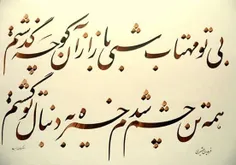 بی تو مهتاب شبی باز از آن کوچه گذشتم
همه تن چشم شدم خیره به دنبال تو گشتم